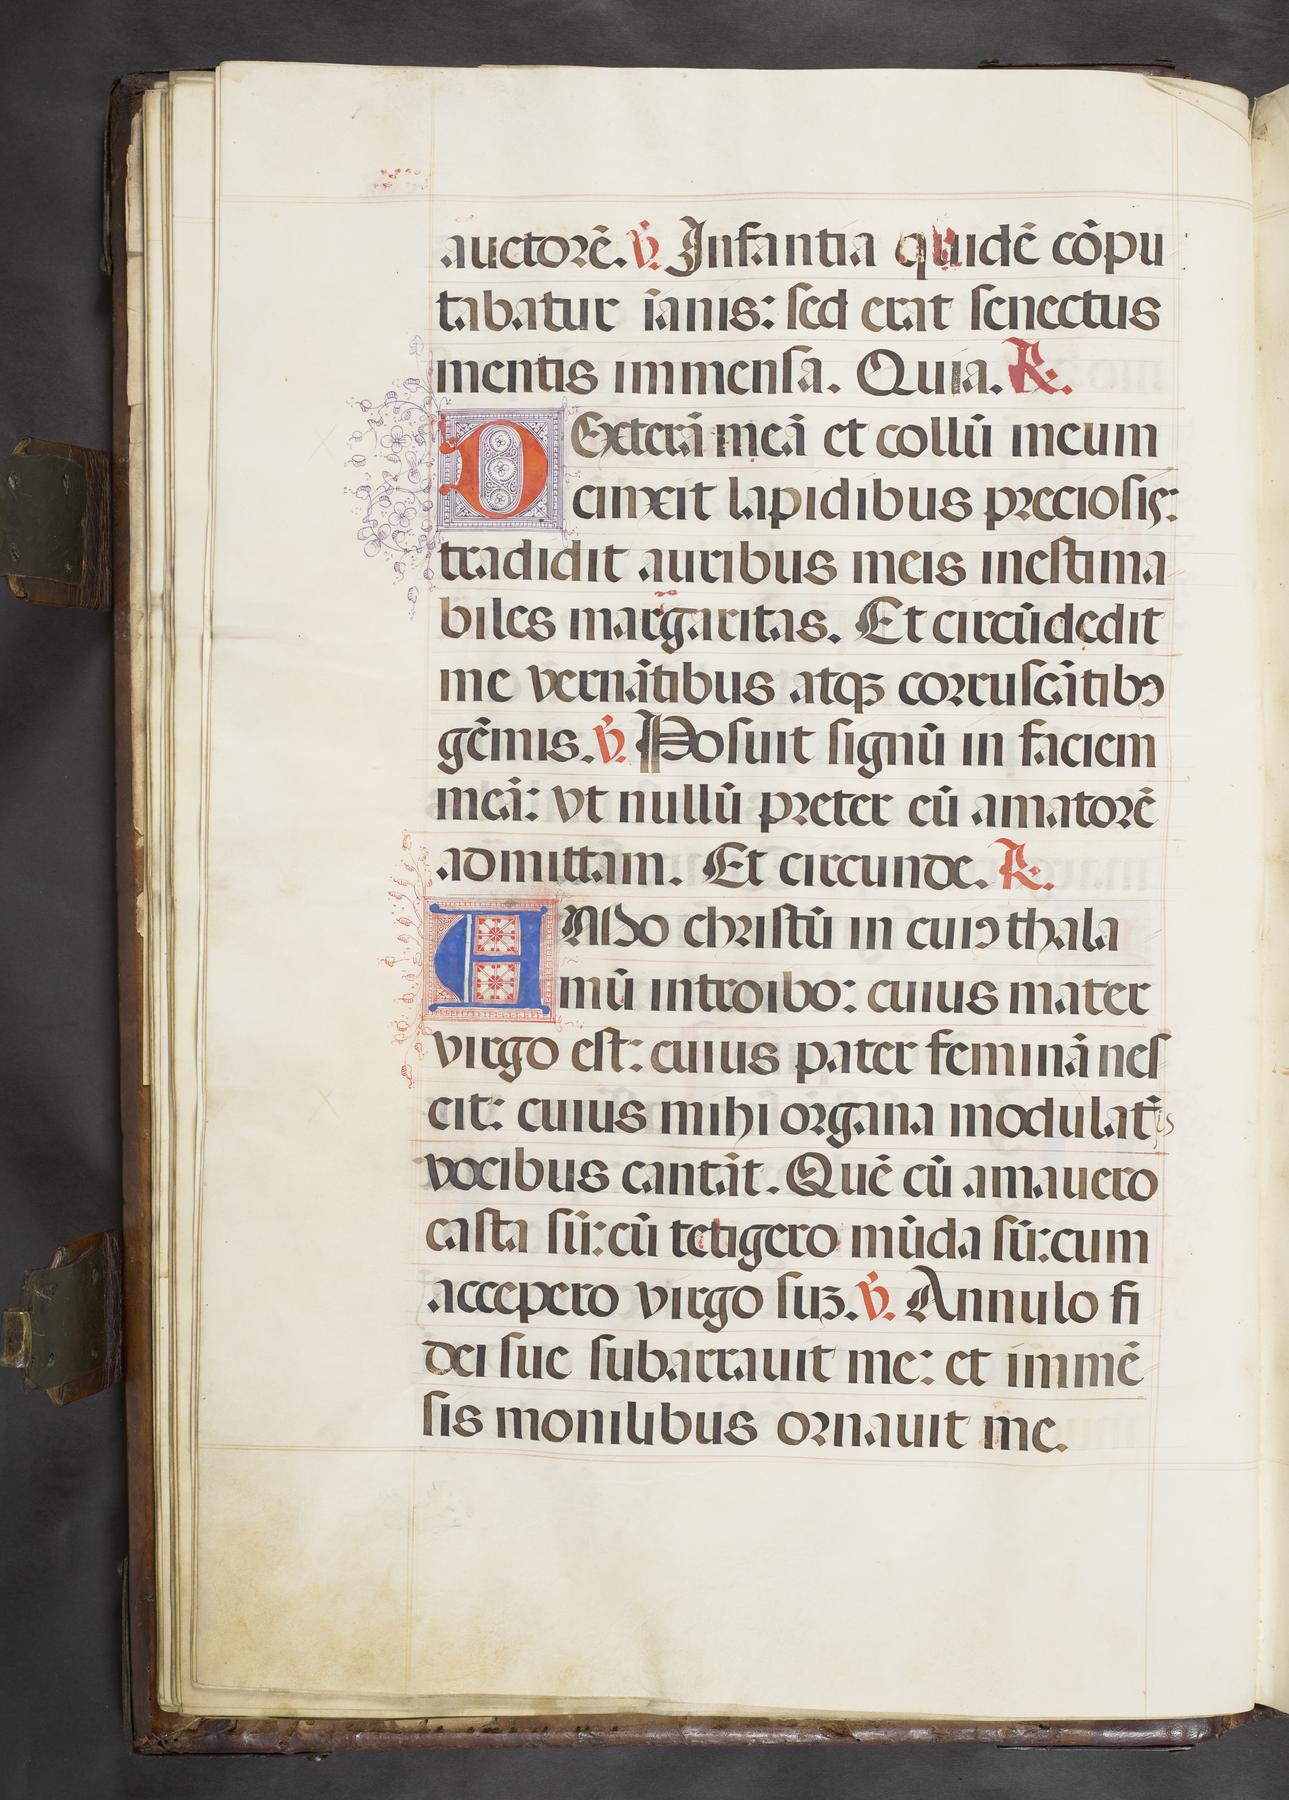 auctorē. ℣. Infantia quidē cōpu
tabatur īanis: sed erat senectus
mentis immensa. Quia. ℟.
DExterā meā et collū meum
cinxit lapidibus preciosis:
tradidit auribus meis inestima
biles margaritas. Et circūdedit
me vernātibus atqꝫ corruscātibꝯ
gēmis. ℣. Posuit signū in faciem
meā: vt nullū preter eū amatorē
admittam. Et circunde. ℟.
AMo christū in cuiꝯ thala
mū introibo: cuius mater
virgo est: cuius pater feminā nes
cit: cuius mihi organa modulat̄is
vocibus cantāt. Quē cū amauero
casta sū: cū tetigero mūda sū: cum
accepero virgo suꝫ. ℣. Annulo fi
dei sue subarrauit me: et immē
sis monilibus ornauit me.